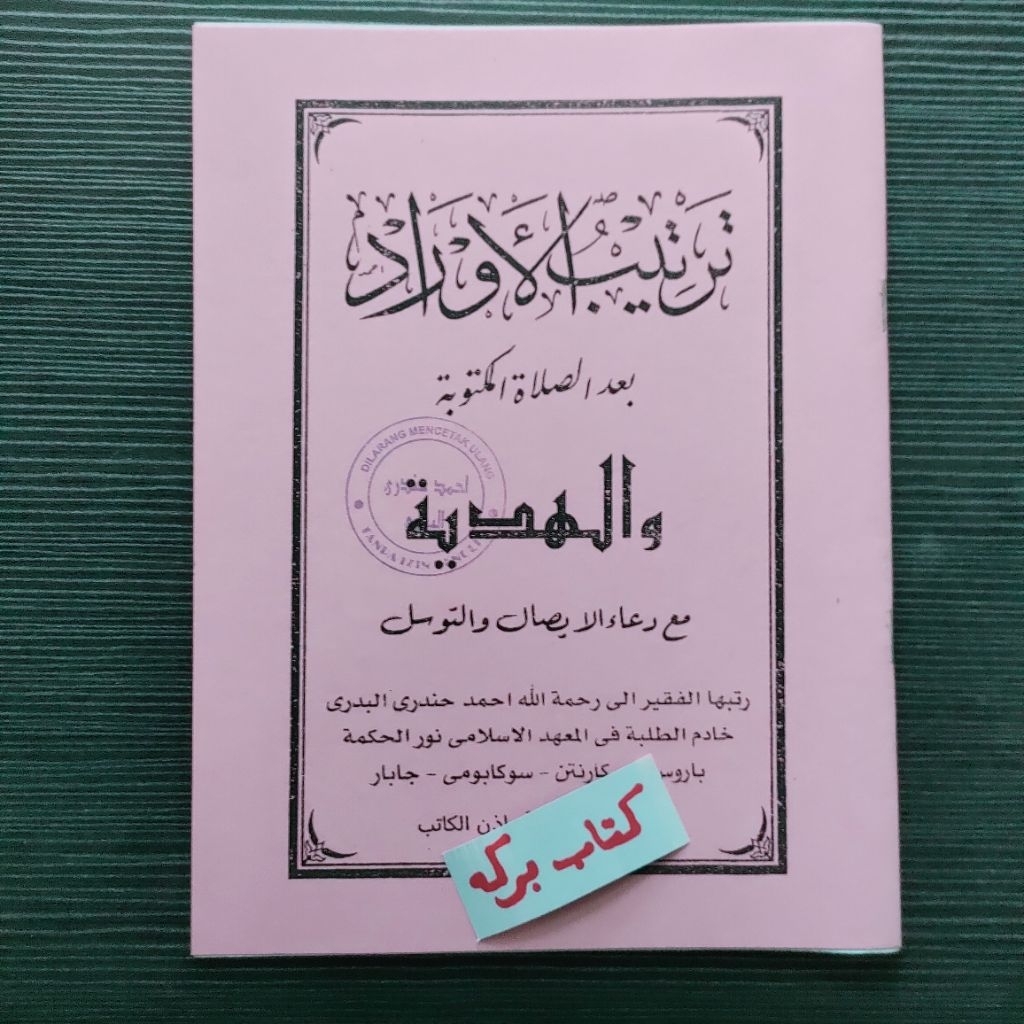 تَرَتِيبُ الأَوْرَادْ
بعد الصلاة المكتوبة
DILARANG MENCETAK ULANG
احمد حندرى
والهدية
مع دعاء الايصال والتوسل
رتبها الفقير الى رحمة الله احمد حندرى البدرى
خادم الطلبة فى المعهد الاسلامى نور الحكمة
كارنتن - سوكابومى - جابار
الكاتب
كتاب بركه